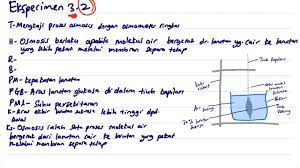 Eksperimen 3.2
T- Mengkaji proses osmosis dengan osmometer ringkas
H- Osmosis berlaku apabila molekul air bergerak dr larutan yg cair ke larutan
yang lebih pekat melalui membran separa telap
R-
B-
PM- kepekatan larutan
PGB- Aras larutan glukosa di dalam tiub kapilari
PMA- Suhu persekitaran
K- Aras akhir larutan sukrosa lebih tinggi dpd
awal
Ks- Osmosis ialah satu proses molekul air
bergerak dari larutan cair ke larutan yang pekat
melalui membran separa telap
Tiub kapilari
Aras awal
larutan